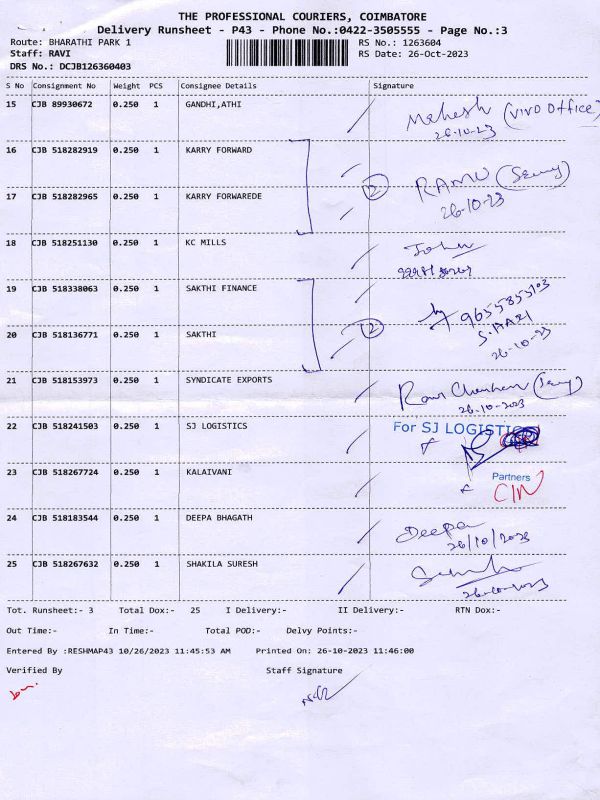 THE PROFESSIONAL COURIERS, COIMBATORE
Delivery Runsheet - P43 - Phone No.:0422-3505555 - Page No.:3
Route: BHARATHI PARK 1 RS No.: 1263604
Staff: RAVI RS Date: 26-Oct-2023
DRS No.: DCJB126360403
S No Consignment No Weight PCS Consignee Details Signature
15 CJB 89930672 0.250 1 GANDHI,ATHI Mahesh (VIVO Office)
26-10-23
16 CJB 518282919 0.250 1 KARRY FORWARD
② RAMU
17 CJB 518282965 0.250 1 KARRY FORWAREDE 26-10-23
18 CJB 518251130 0.250 1 KC MILLS
19 CJB 518338063 0.250 1 SAKTHI FINANCE
②
20 CJB 518136771 0.250 1 SAKTHI
26-10-23
21 CJB 518153973 0.250 1 SYNDICATE EXPORTS
26-10-2023
22 CJB 518241503 0.250 1 SJ LOGISTICS For SJ LOGISTICS
23 CJB 518267724 0.250 1 KALAIVANI Partners
CIN
24 CJB 518183544 0.250 1 DEEPA BHAGATH Deepa
26/10/2023
25 CJB 518267632 0.250 1 SHAKILA SURESH
26-10-2023
Tot. Runsheet:- 3 Total Dox:- 25 I Delivery:- II Delivery:- RTN Dox:-
Out Time:- In Time:- Total POD:- Delvy Points:-
Entered By :RESHMAP43 10/26/2023 11:45:53 AM Printed On: 26-10-2023 11:46:00
Verified By Staff Signature